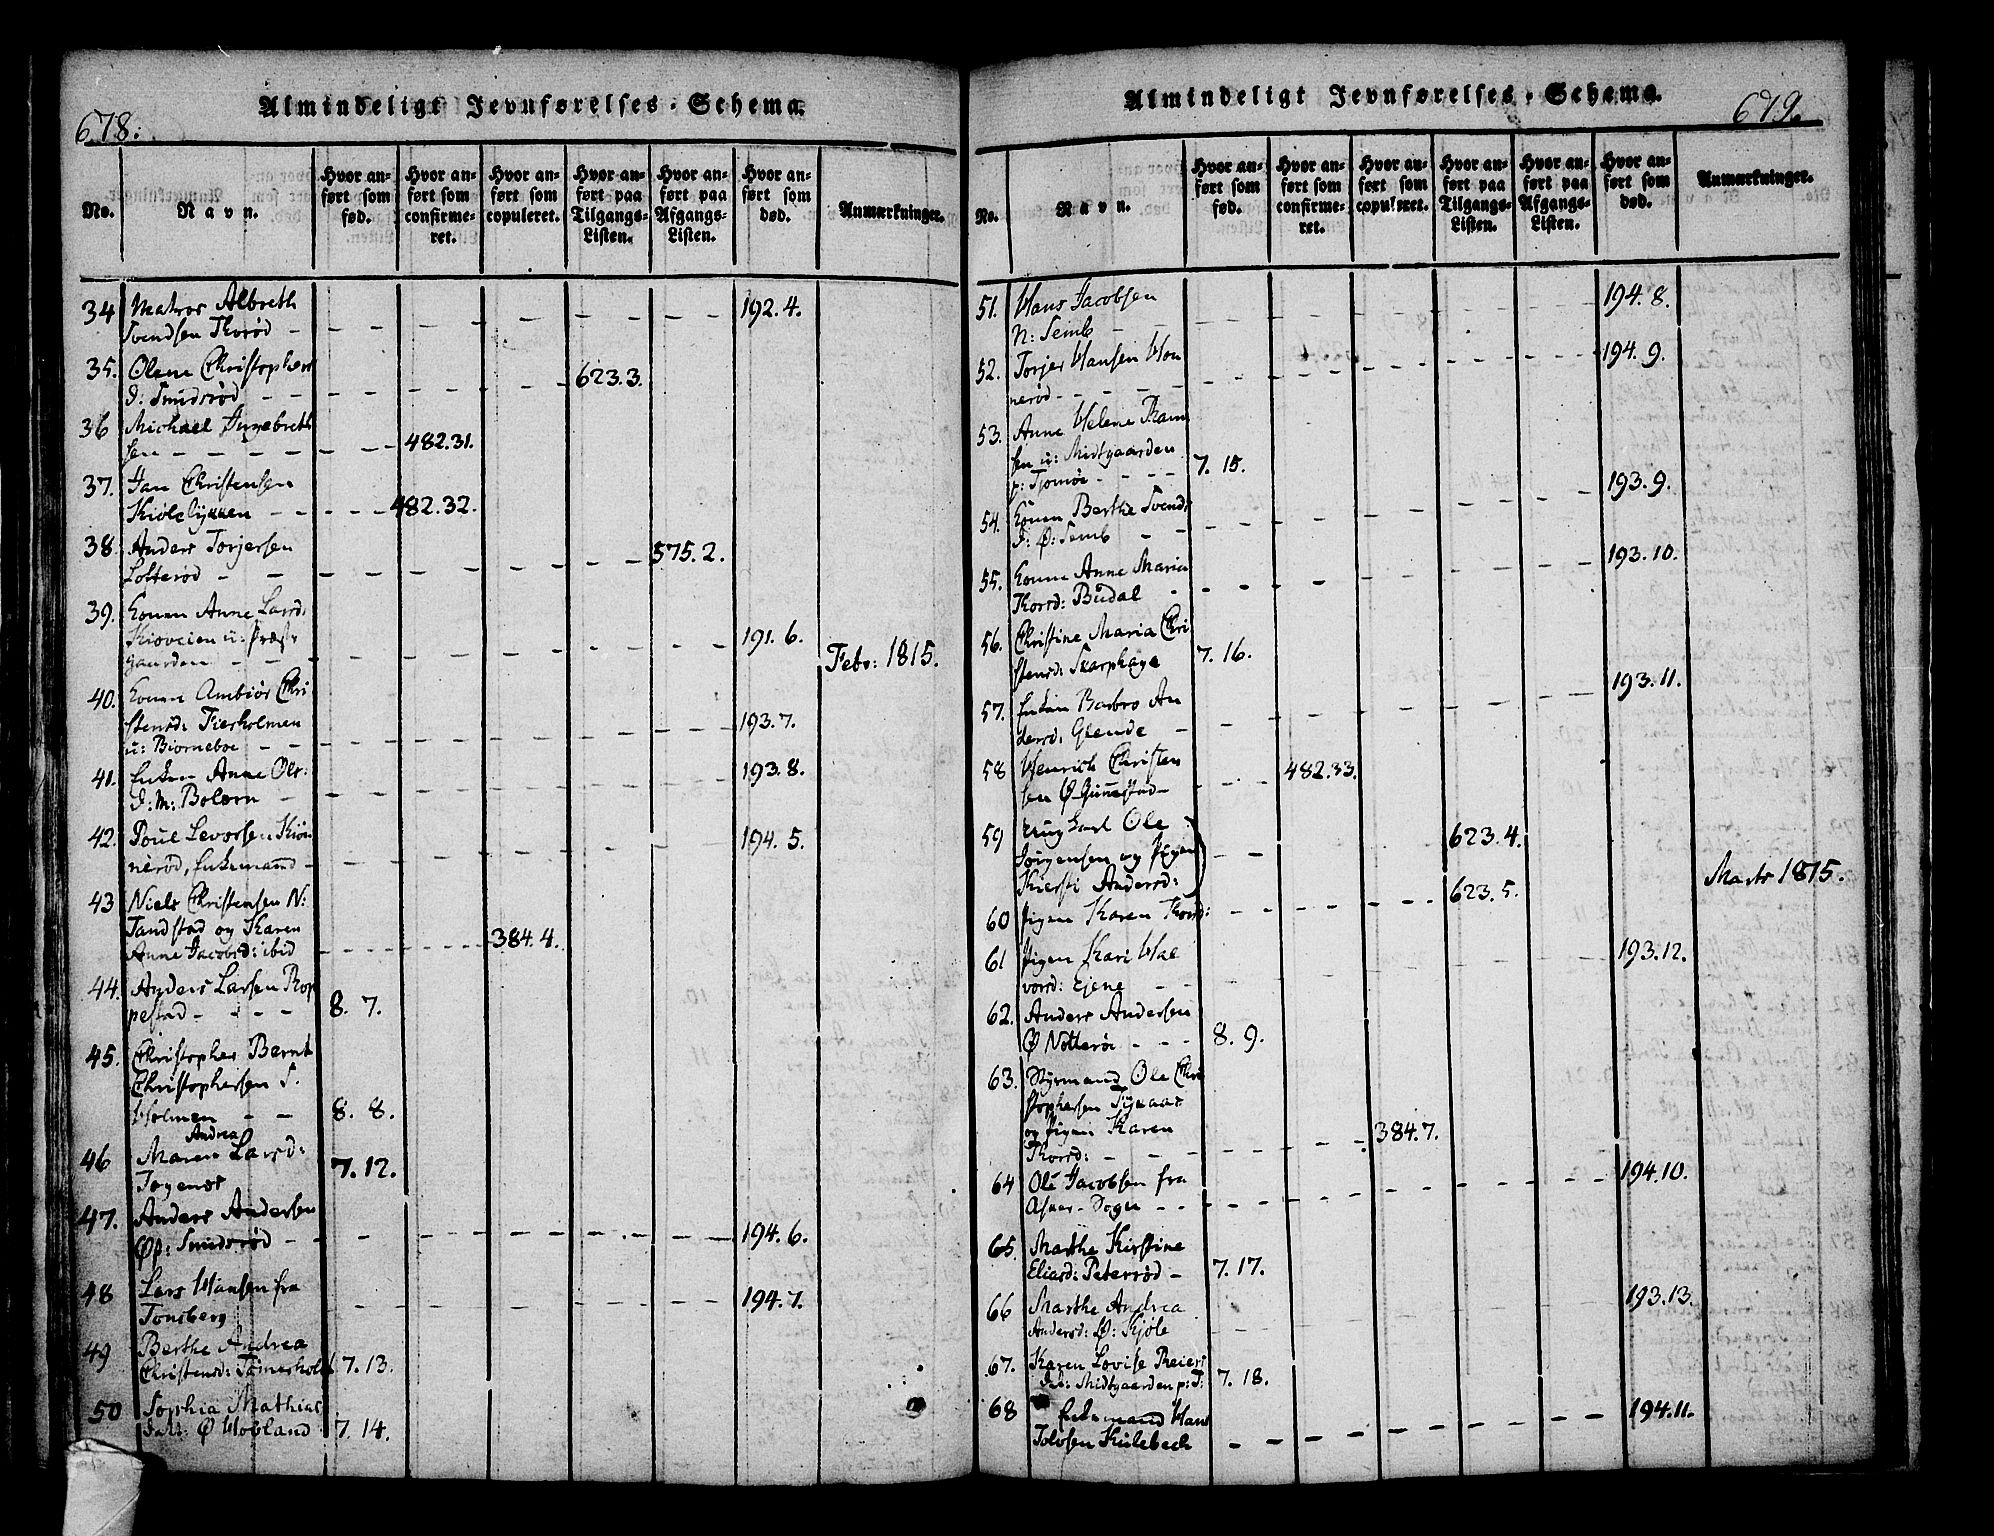 678.
Almindeligt Jevnførelses-Schema.
No.
Navn.
Hvor anført som fød.
Hvor anført som confirmeret.
Hvor anført som copuleret.
Hvor anført paa Tilgangs-Listen.
Hvor anført paa Afgangs-Listen.
Hvor anført som død.
Anmærkninger.
34 Matros Albreth
Svendsen Thorød - 192.4.
35. Olene Christophers
d: Smidsrød - 623.3.
36 Michael Ingebreth
sen - 482.31.
37. Jan Christensen
Kiølelykken - 482.32.
38. Anders Torjersen
Lofterød - 575.2.
39. Konen Anne Larsd:
Kioveien u: Præste
gaarden - 191.6.
Febr: 1815.
40. Konen Ambiør Chri
stensd: Fierholmen
u: Biørneboe - 193.7.
41. Enken Anne Ols:
d: M: Bolærn - 193.8.
42. Poul Levorsen Kiøn
nerød, Enkemand - 194.5.
43 Niels Christensen N:
Tandstad og Karen
Anne Jacobsd: ibid - 384.4.
44. Anders Larsen Rop
pestad - 8. 7.
45. Christopher Bernt
Christophersen S.
Holmen - 8. 8.
Andrea
46 Maren Larsd:
Togenæs 7.12.
47. Anders Andersen
Øp: Smidsrød - 194.6.
48 Lars Hansen fra
Tønsberg - 194.7.
49 Berthe Andrea
Christensd: Tømerholt 7.13.
50 Sophia Mathias
datt: Ø Hobland 7.14.
679.
Almindeligt Jevnførelses-Schema.
No.
Navn.
Hvor anført som fød.
Hvor anført som confirmeret.
Hvor anført som copuleret.
Hvor anført paa Tilgangs-Listen.
Hvor anført paa Afgangs-Listen.
Hvor anført som død.
Anmærkninger.
51. Hans Jacobsen
N: Semb - 194.8.
52. Torjer Hansen Høn
nerød - 194.9.
53. Anne Helene Ram
sen u: Midtgaarden
p: Tjømøe - 7.15.
54. Konen Berthe Svends
d: Ø: Semb - 193.9.
55. Konen Anne Maria
Thorsd: Budal - 193.10.
56. Christine Maria Chri
stensd: Skarphage 7.16.
57. Enken Barbro An
dersd: Glende - 193.11.
58 Henrich Christen
sen Ø Gunnestad - 482.33.
59 Ungkarl Ole
Jørgensen og Pigen
Kiersti Andersd: 623.4.
60 Pigen Karen Thorsd: - 623.5.
Marts 1815.
61 Pigen Kari Hal
vorsd: Ejene - 193.12.
62. Anders Andersen
Ø Nøtterøe - 8. 9.
63. Styrmand Ole Chri
stophersen
og Pigen Karen
Thorsd: - 384.7.
64 Ole Jacobsen fra
Asker-Sogn - 194.10.
65. Marthe Kirstine
Eliasd: Petersrød - 7.17.
66 Marthe Andrea
Andersd: Ø: Kjøle 193.13.
67. Karen Lovise Reiers
dat: Midtgaarden p: T: 7.18.
68 Enkemand Hans
Tolvsen Kulebech - 194.11.